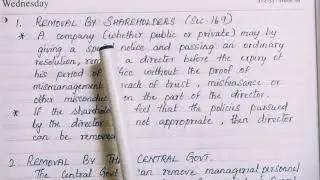 Wednesday
1. REMOVAL BY SHAREHOLDERS (Sec-169)
* A company (whether public or private) may by
giving a notice and passing an ordinary
resolution, a director before the expiry of
his period office without the proof of
mismanagement, breach of trust, misfeasance or
other on the part of the director.
* If the feel that the policies pursued
by the not appropriate, then director
can be
2. REMOVAL BY CENTRAL GOVT.
The Central can remove managerial personnel